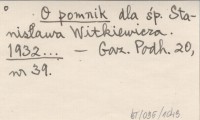 O pomnik dla śp. Sta-
nisława Witkiewicza.
1932... — Gaz. Podh. 20,
nr 39.